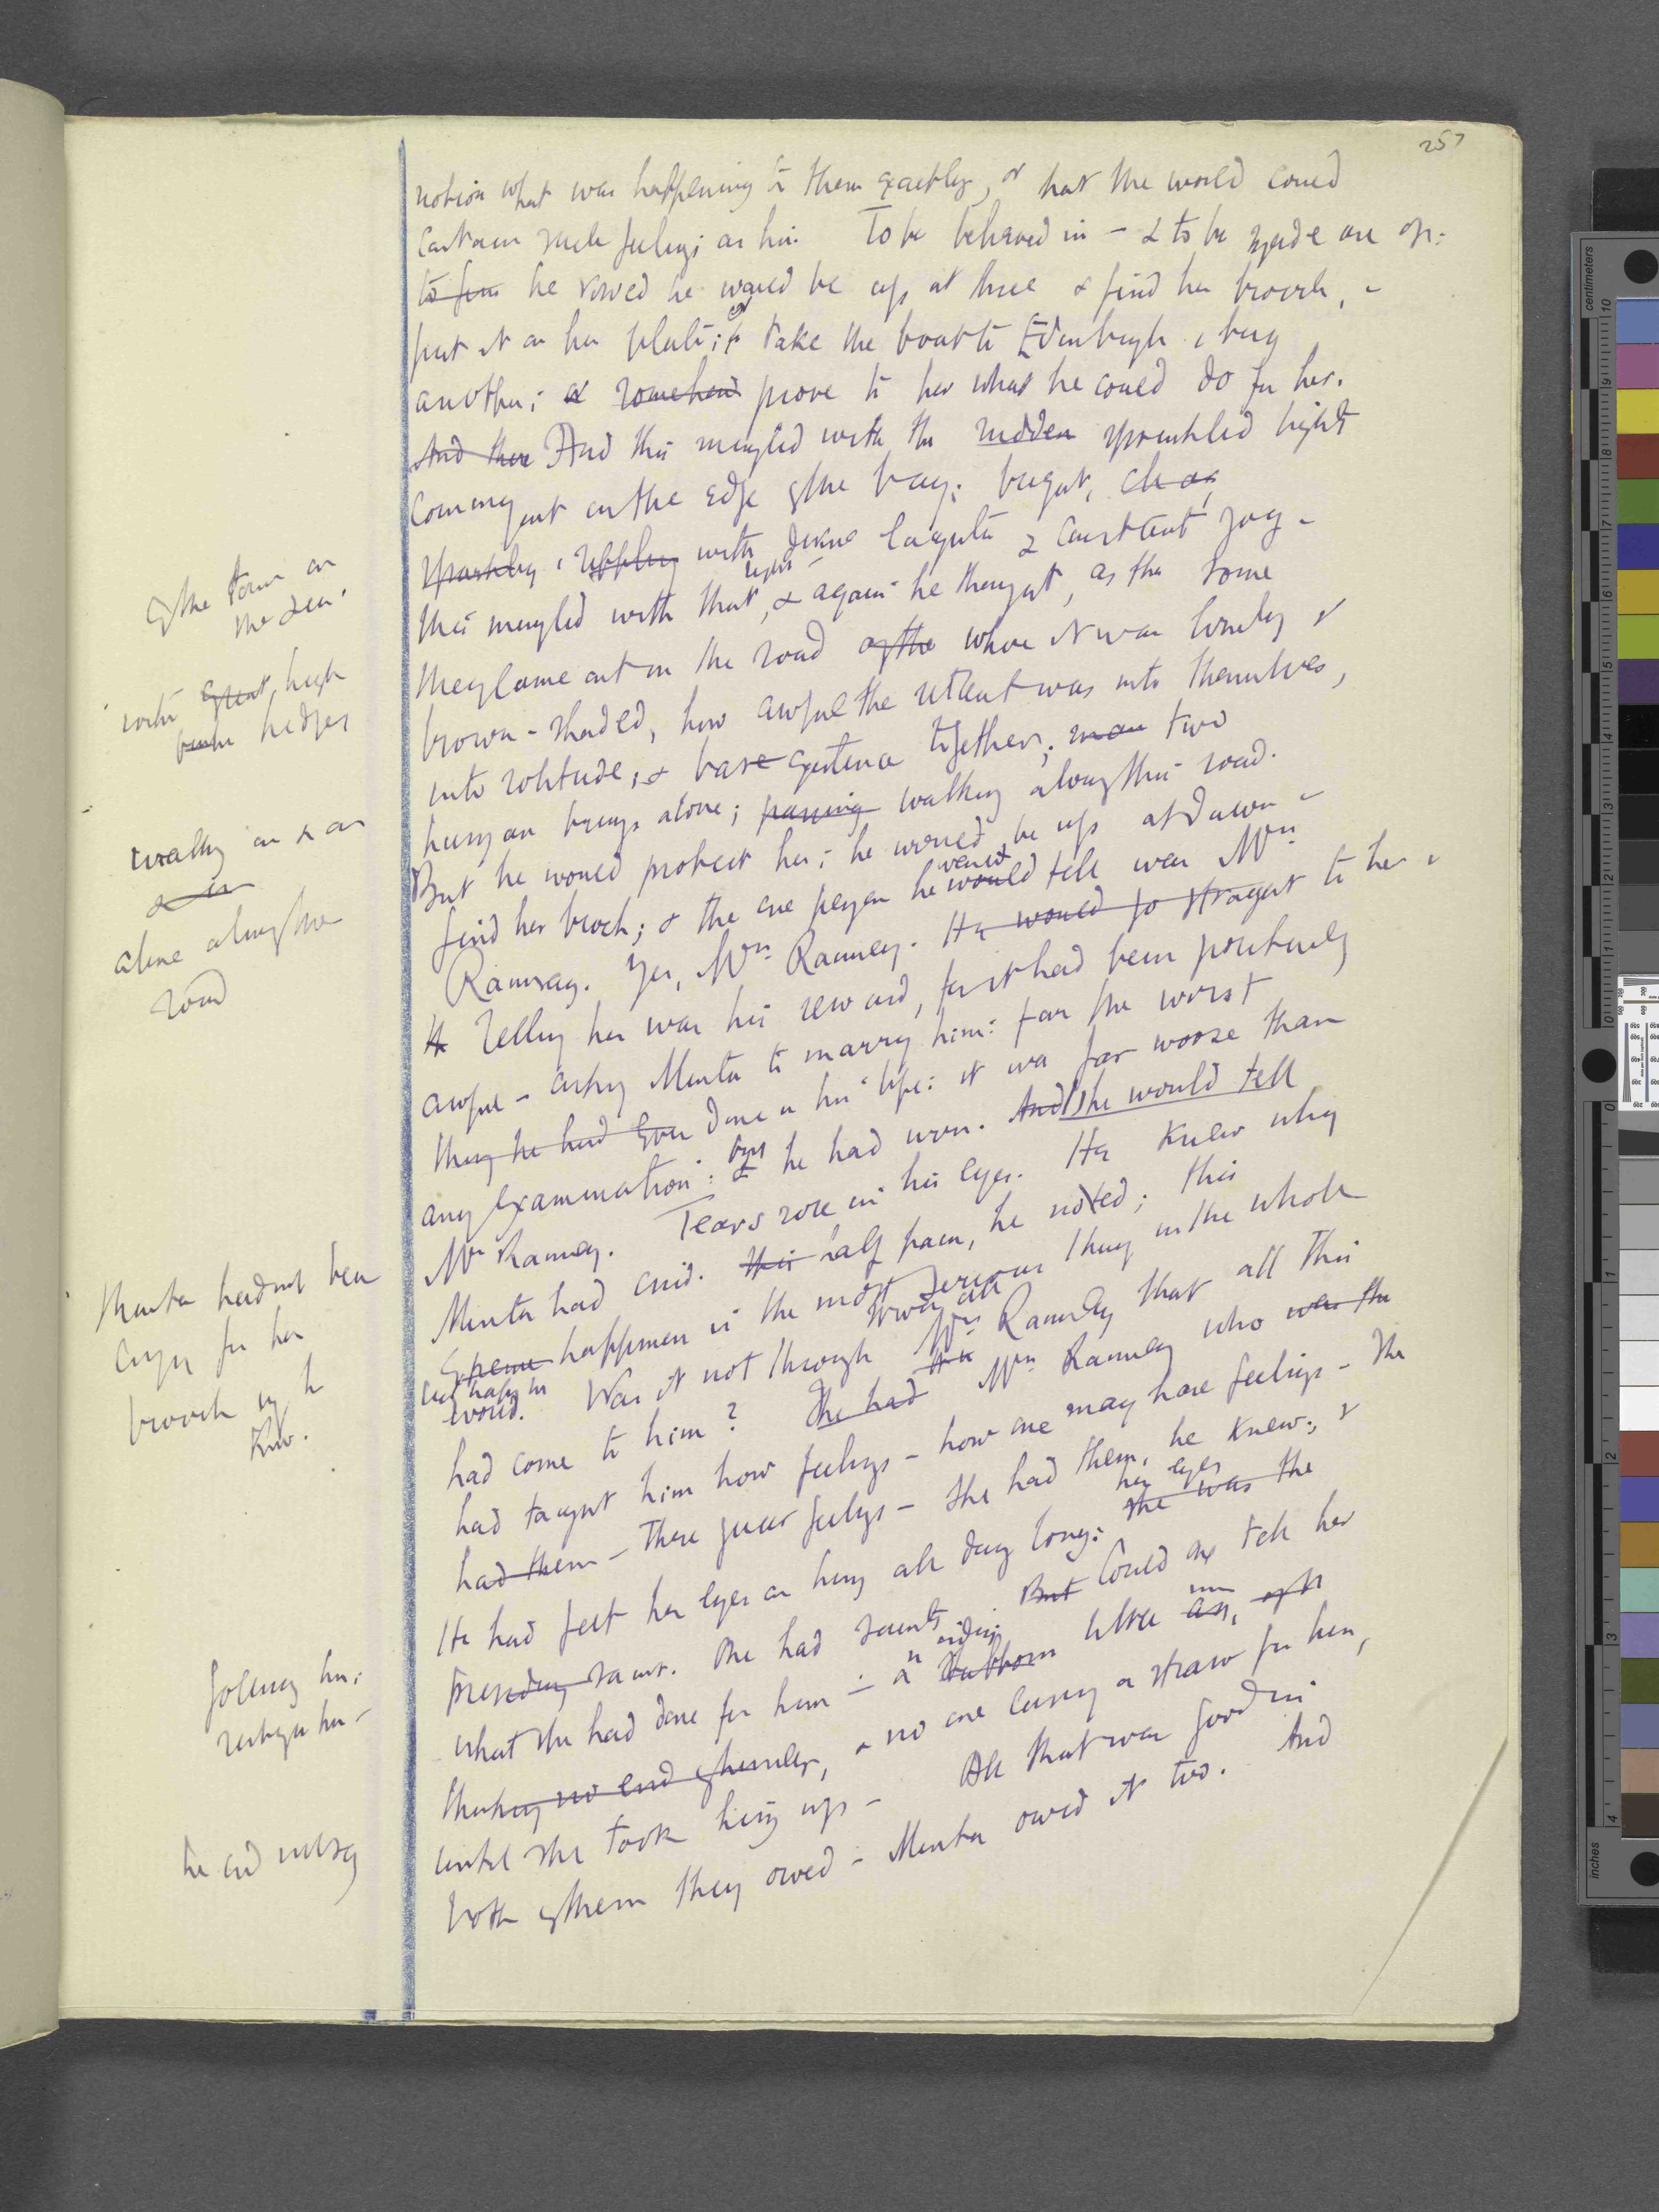 257
notion what was happening to them exactly, or that the world could
contain such feelings as his. To be believed in - & to be made use of:
to find he vowed he would be up at three & find her brooch, &
put it on her plate; or take the boat to Edinburgh & buy
another; & somehow prove to her what he could do for her.
And there And this mingled with the sudden sprinkled lights
coming out on the edge of the bay; bright,
of the town on
the sea.
sparkling, & rippling with laughter & constant joy -
this mingled with that, & again he thought, as they
they came out on the road of the where it was lonely &
with great, high
hedges
brown-shaded, how awful the retreat was into themselves,
into solitude, & bare existence together; man two
human beings alone; passing walking along this road.
walking on & on
& on
alone along the
road
But he would protect her; he would be up at dawn &
find her broch; & the one person he would would tell was Mrs
Ramsay. Yes, Mrs. Ramsay. He would go straight to her &
H Telling her was his reward, for it had been positively
awful - asking Minta to marry him: far the worst
thing he had ever done in his life: it was far worse than
any examination: & but he had won. And she would tell
Mrs Ramsay. Tears rose in his eyes. He knew why
Minta had cried. This half pain, he noted; this
Minta had not been
crying for her
brooch only he
knew.
Extreme happiness is the most serious thing in the whole
world. Was it not through Mrs Ramsay that all this
had come to him? She had Mrs Ramsay who was the
had taught him how feelings - how one may have feelings - the
had them - these queer feelings - she had them, he knew; &
He had felt her eyes on him all day long: her eyes she was the
following him;
presiding saint. She had But Could he tell her
what she had done for him - a stubborn little man ass,
thinking no end of himself, & no one caring a straw for him,
until she took him up - All that was good in
he did not say
both of them they owed - Minta owed it too. And